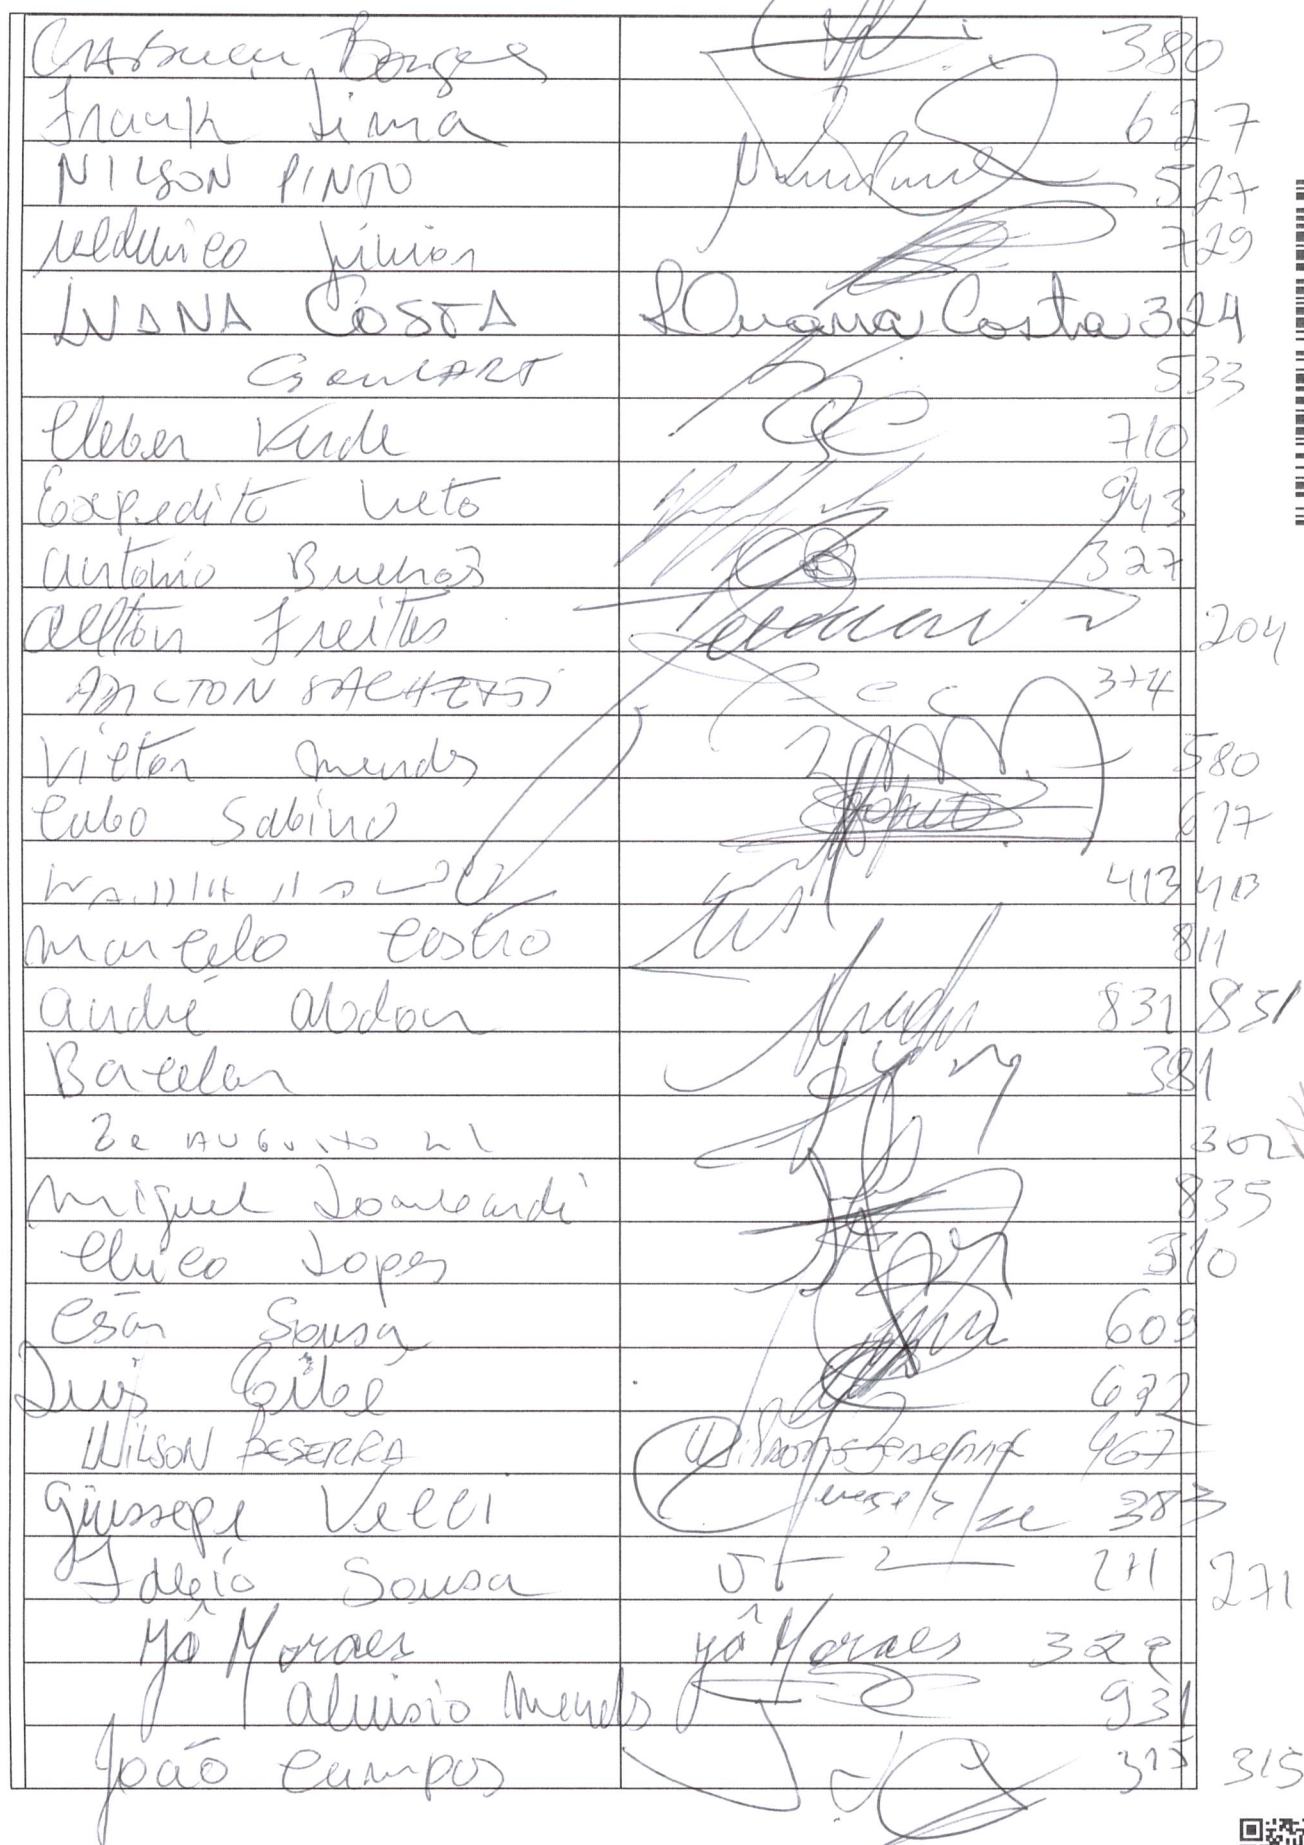 Borges 380
Frank Lima 627
NILSON PINTO 527
Júnior 729
LUANA COSTA Luana Costa 324
GOULART 533
Cleber Verde 710
Expedito Neto 943
Antonio Bulhões 327
Ailton Freitas 204
ADILTON SACHETTI 374
Victor Mendes 580
Cabo Sabino 617
413 413
Marcelo Castro 811
André Abdon 831 831
Bacelar 381
Ze AUGUSTO 302
Miguel Lombardi 835
Chico Lopes 310
César Sousa 609
Luis Tibé 632
WILSON BESERRA Wilson Beserra 467
Giussepe Vecci 383
Idecio Sousa 271 271
Jô Moraes Jô Moraes 322
Aluisio Mendes 931
João Campos 315 315